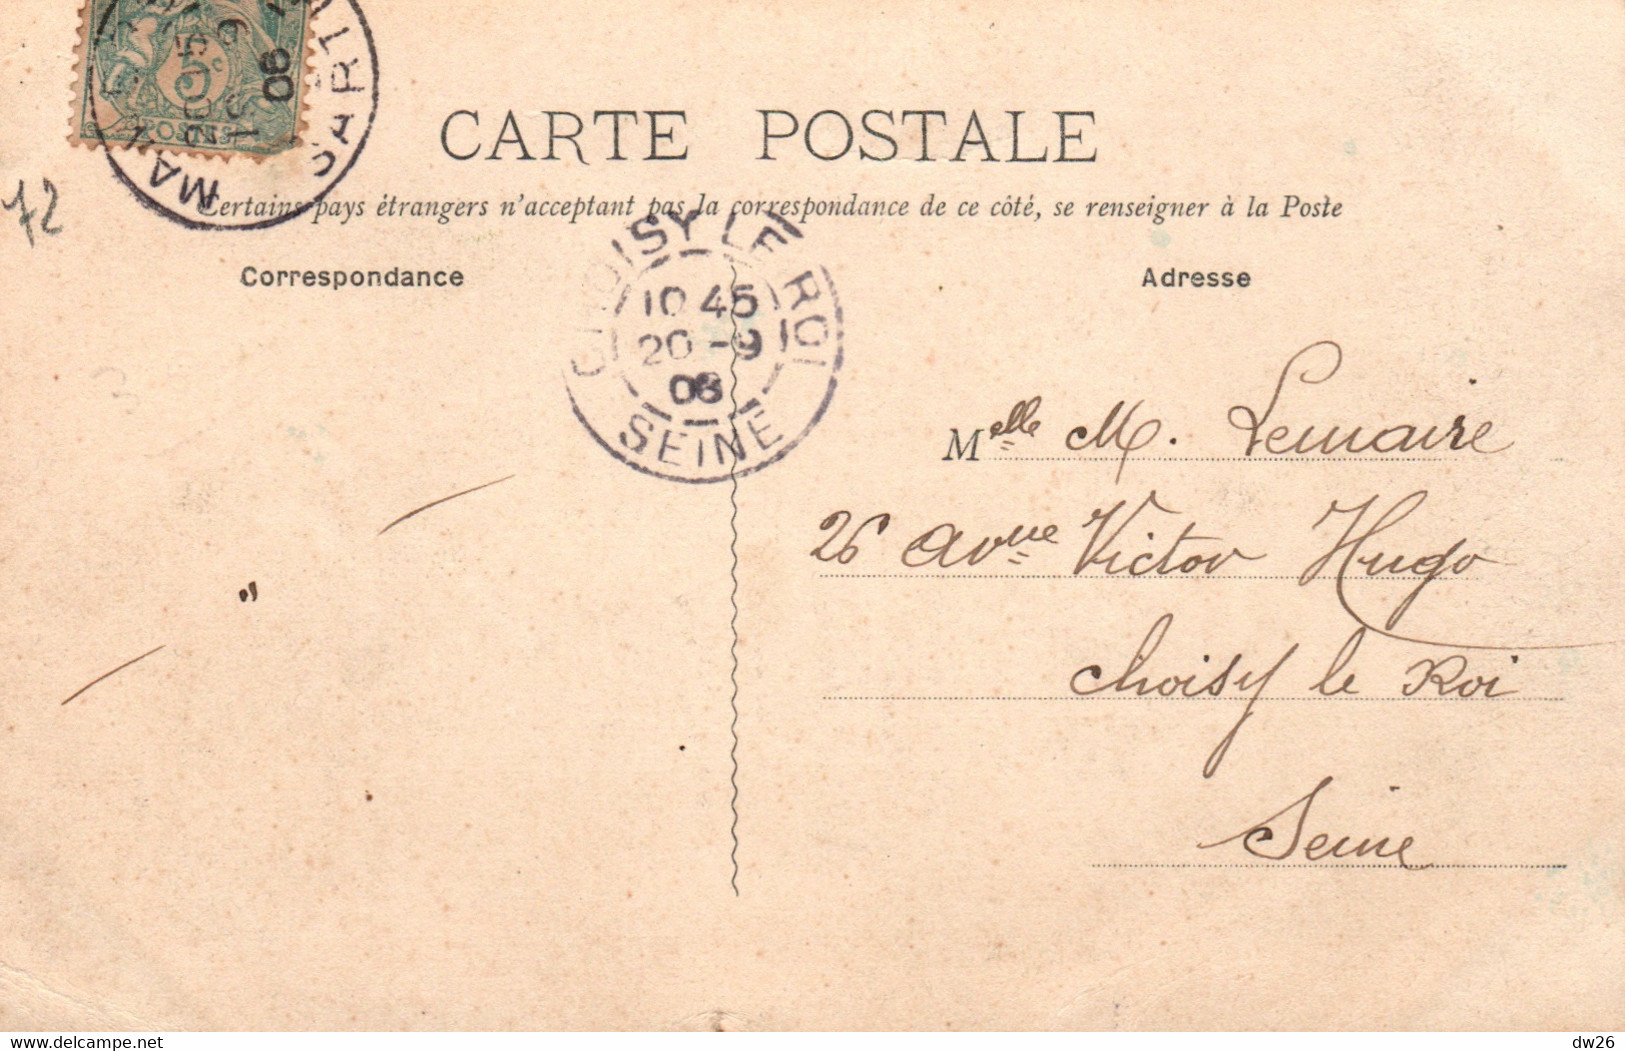 5c
POSTES
20 05
19 9
06
CARTE POSTALE
72
Certains pays étrangers n'acceptant pas la correspondance de ce côté, se renseigner à la Poste
Correspondance
Adresse
CHOISY LE ROI
10 45
20 -9
06
SEINE
Melle M. Lemaire
26 Avnue Victor Hugo
Choisy le Roi
Seine
delcampe.net
dw26